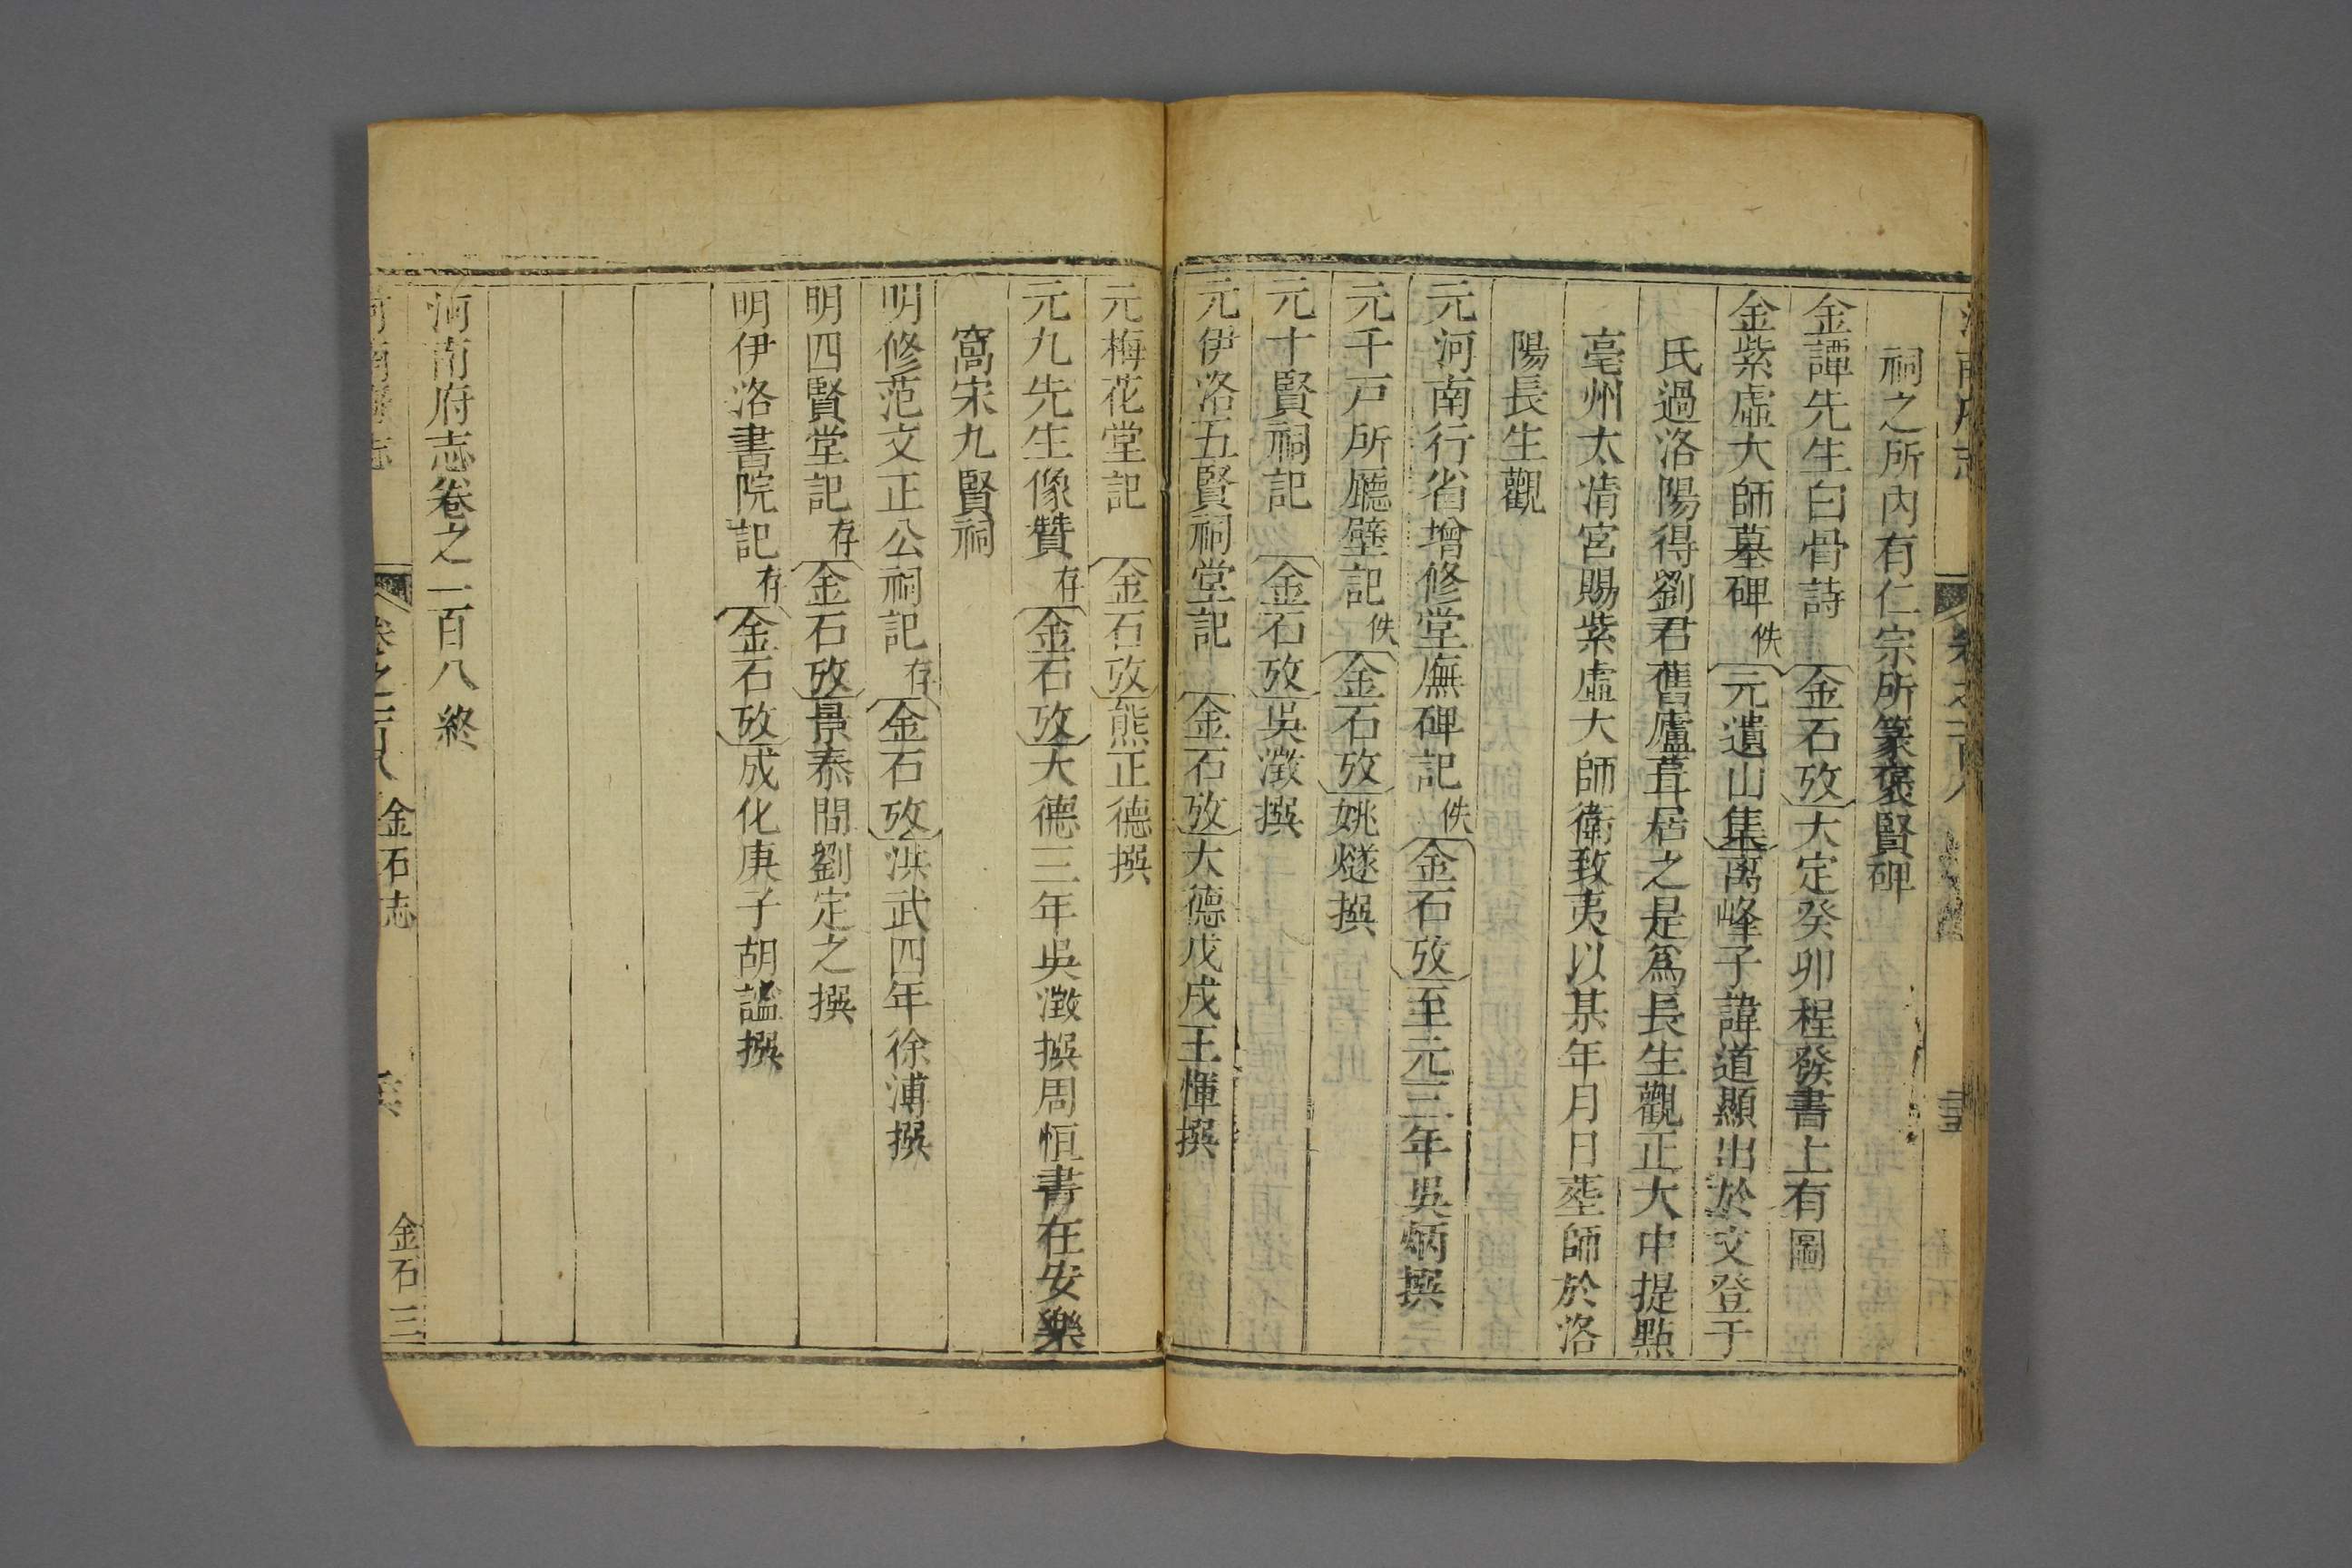 祠之所內有仁宗所篆褒賢碑
金譚先生白骨詩〔金石攷〕大定癸卯程發書上有圖
金紫虛大師墓碑佚〔元遺山集〕离峰子諱道顯出於文登于
氏過洛陽得劉君舊廬葺居之是爲長生觀正大中提點
亳州太清宮賜紫虛大師衛致夷以某年月日塟師於洛
陽長生觀
元河南行省增修堂廡碑記佚〔金石攷〕至元三年吳炳撰
元千戸所廳壁記佚〔金石攷〕姚燧撰
元十賢祠記〔金石攷〕吳澂撰
元伊洛五賢祠堂記〔金石攷〕大德戊戌王惲撰
元梅花堂記〔金石攷〕熊正德撰
元九先生像贊存〔金石攷〕大德三年吳澂撰周恒書在安樂
窩宋九賢祠
明修范文正公祠記存〔金石攷〕洪武四年徐溥撰
明四賢堂記存〔金石攷〕景泰間劉定之撰
明伊洛書院記存〔金石攷〕成化庚子胡謐撰
河南府志卷之一百八終
金石志
金石三